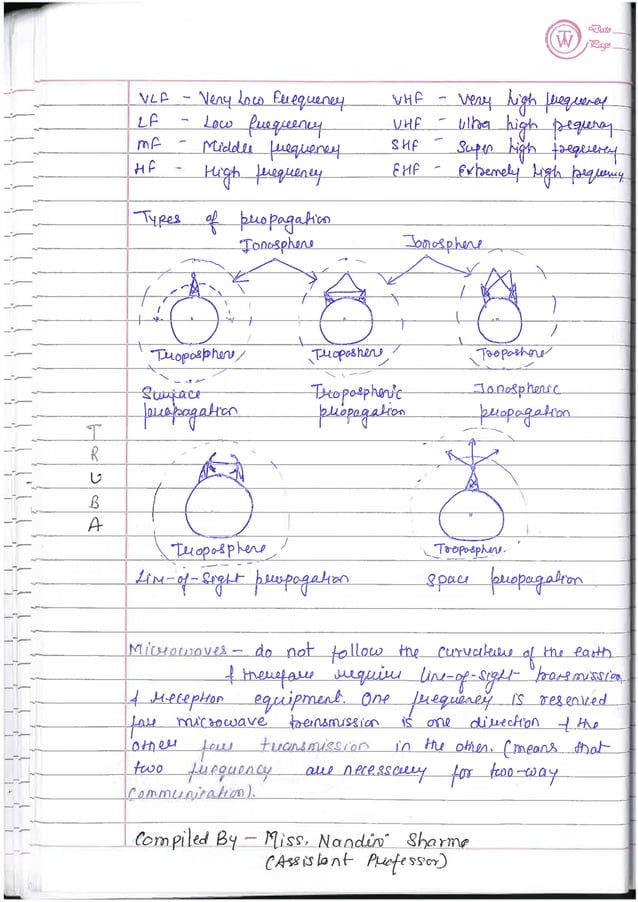 TW
Date
Page
VLF - Very Low Frequency
VHF - Very high frequency
LF - Low frequency
VHF - Ultra high frequency
MF - Middle frequency
SHF - Super high frequency
HF - High frequency
EHF - Extremely high frequency
Types of propagation
Ionosphere
Ionosphere
Troposphere
Troposhere
Troposhere
Surface
propagation
Tropospheric
propagation
Ionospheric
propagation
T
R
U
B
A
Troposphere
Troposphere.
Line-of-Sight propagation
Space propagation
Microwaves - do not follow the curvature of the earth
& therefore require line-of-sight transmission
& reception equipment. One frequency is reserved
for microwave transmission is one direction & the
other for transmission in the other. (means that
two frequency are necessary for two-way
communication).
Compiled By - Miss. Nandini Sharma
(Assistant Professor)